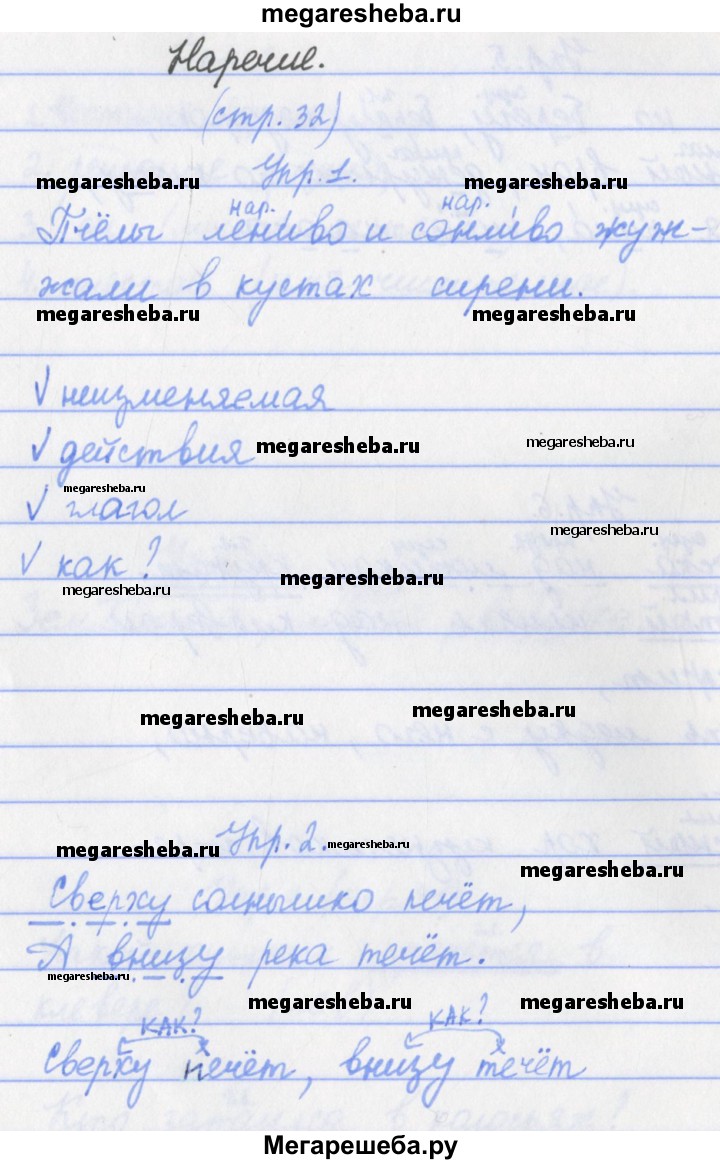 megaresheba.ru
Наречие.
(стр. 32)
Упр. 1.
megaresheba.ru megaresheba.ru
нар. нар.
Пчёлы лениво и сонливо жуж-
жали в кустах сирени.
megaresheba.ru megaresheba.ru
√ неизменяемая
√ действия
megaresheba.ru megaresheba.ru
megaresheba.ru
√ глагол
megaresheba.ru
√ как?
megaresheba.ru
megaresheba.ru
megaresheba.ru megaresheba.ru
Упр. 2.
megaresheba.ru megaresheba.ru
megaresheba.ru
Сверху солнышко печёт,
А внизу река течёт.
megaresheba.ru
megaresheba.ru megaresheba.ru
как? как?
Сверху печёт, внизу течёт
Мегарешеба.ру